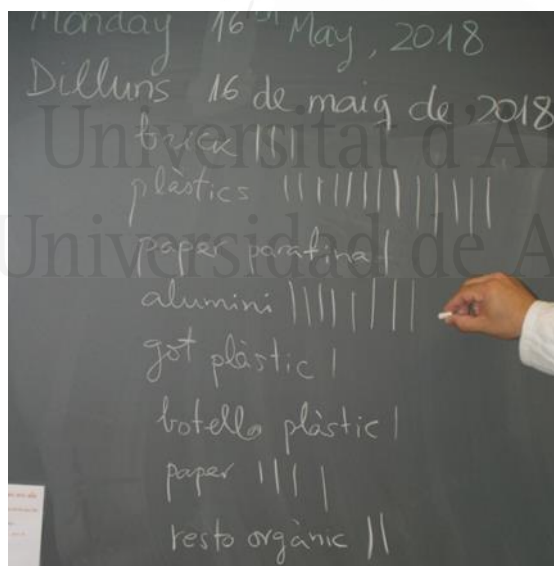 Monday 16th May, 2018
Dilluns 16 de maig de 2018
brick |||
plàstics |||||||||||||
paper parafina |
alumini ||||||||
got plàstic |
botella plàstic |
paper ||||
resto orgànic ||
Universitat d'A
Universidad de A